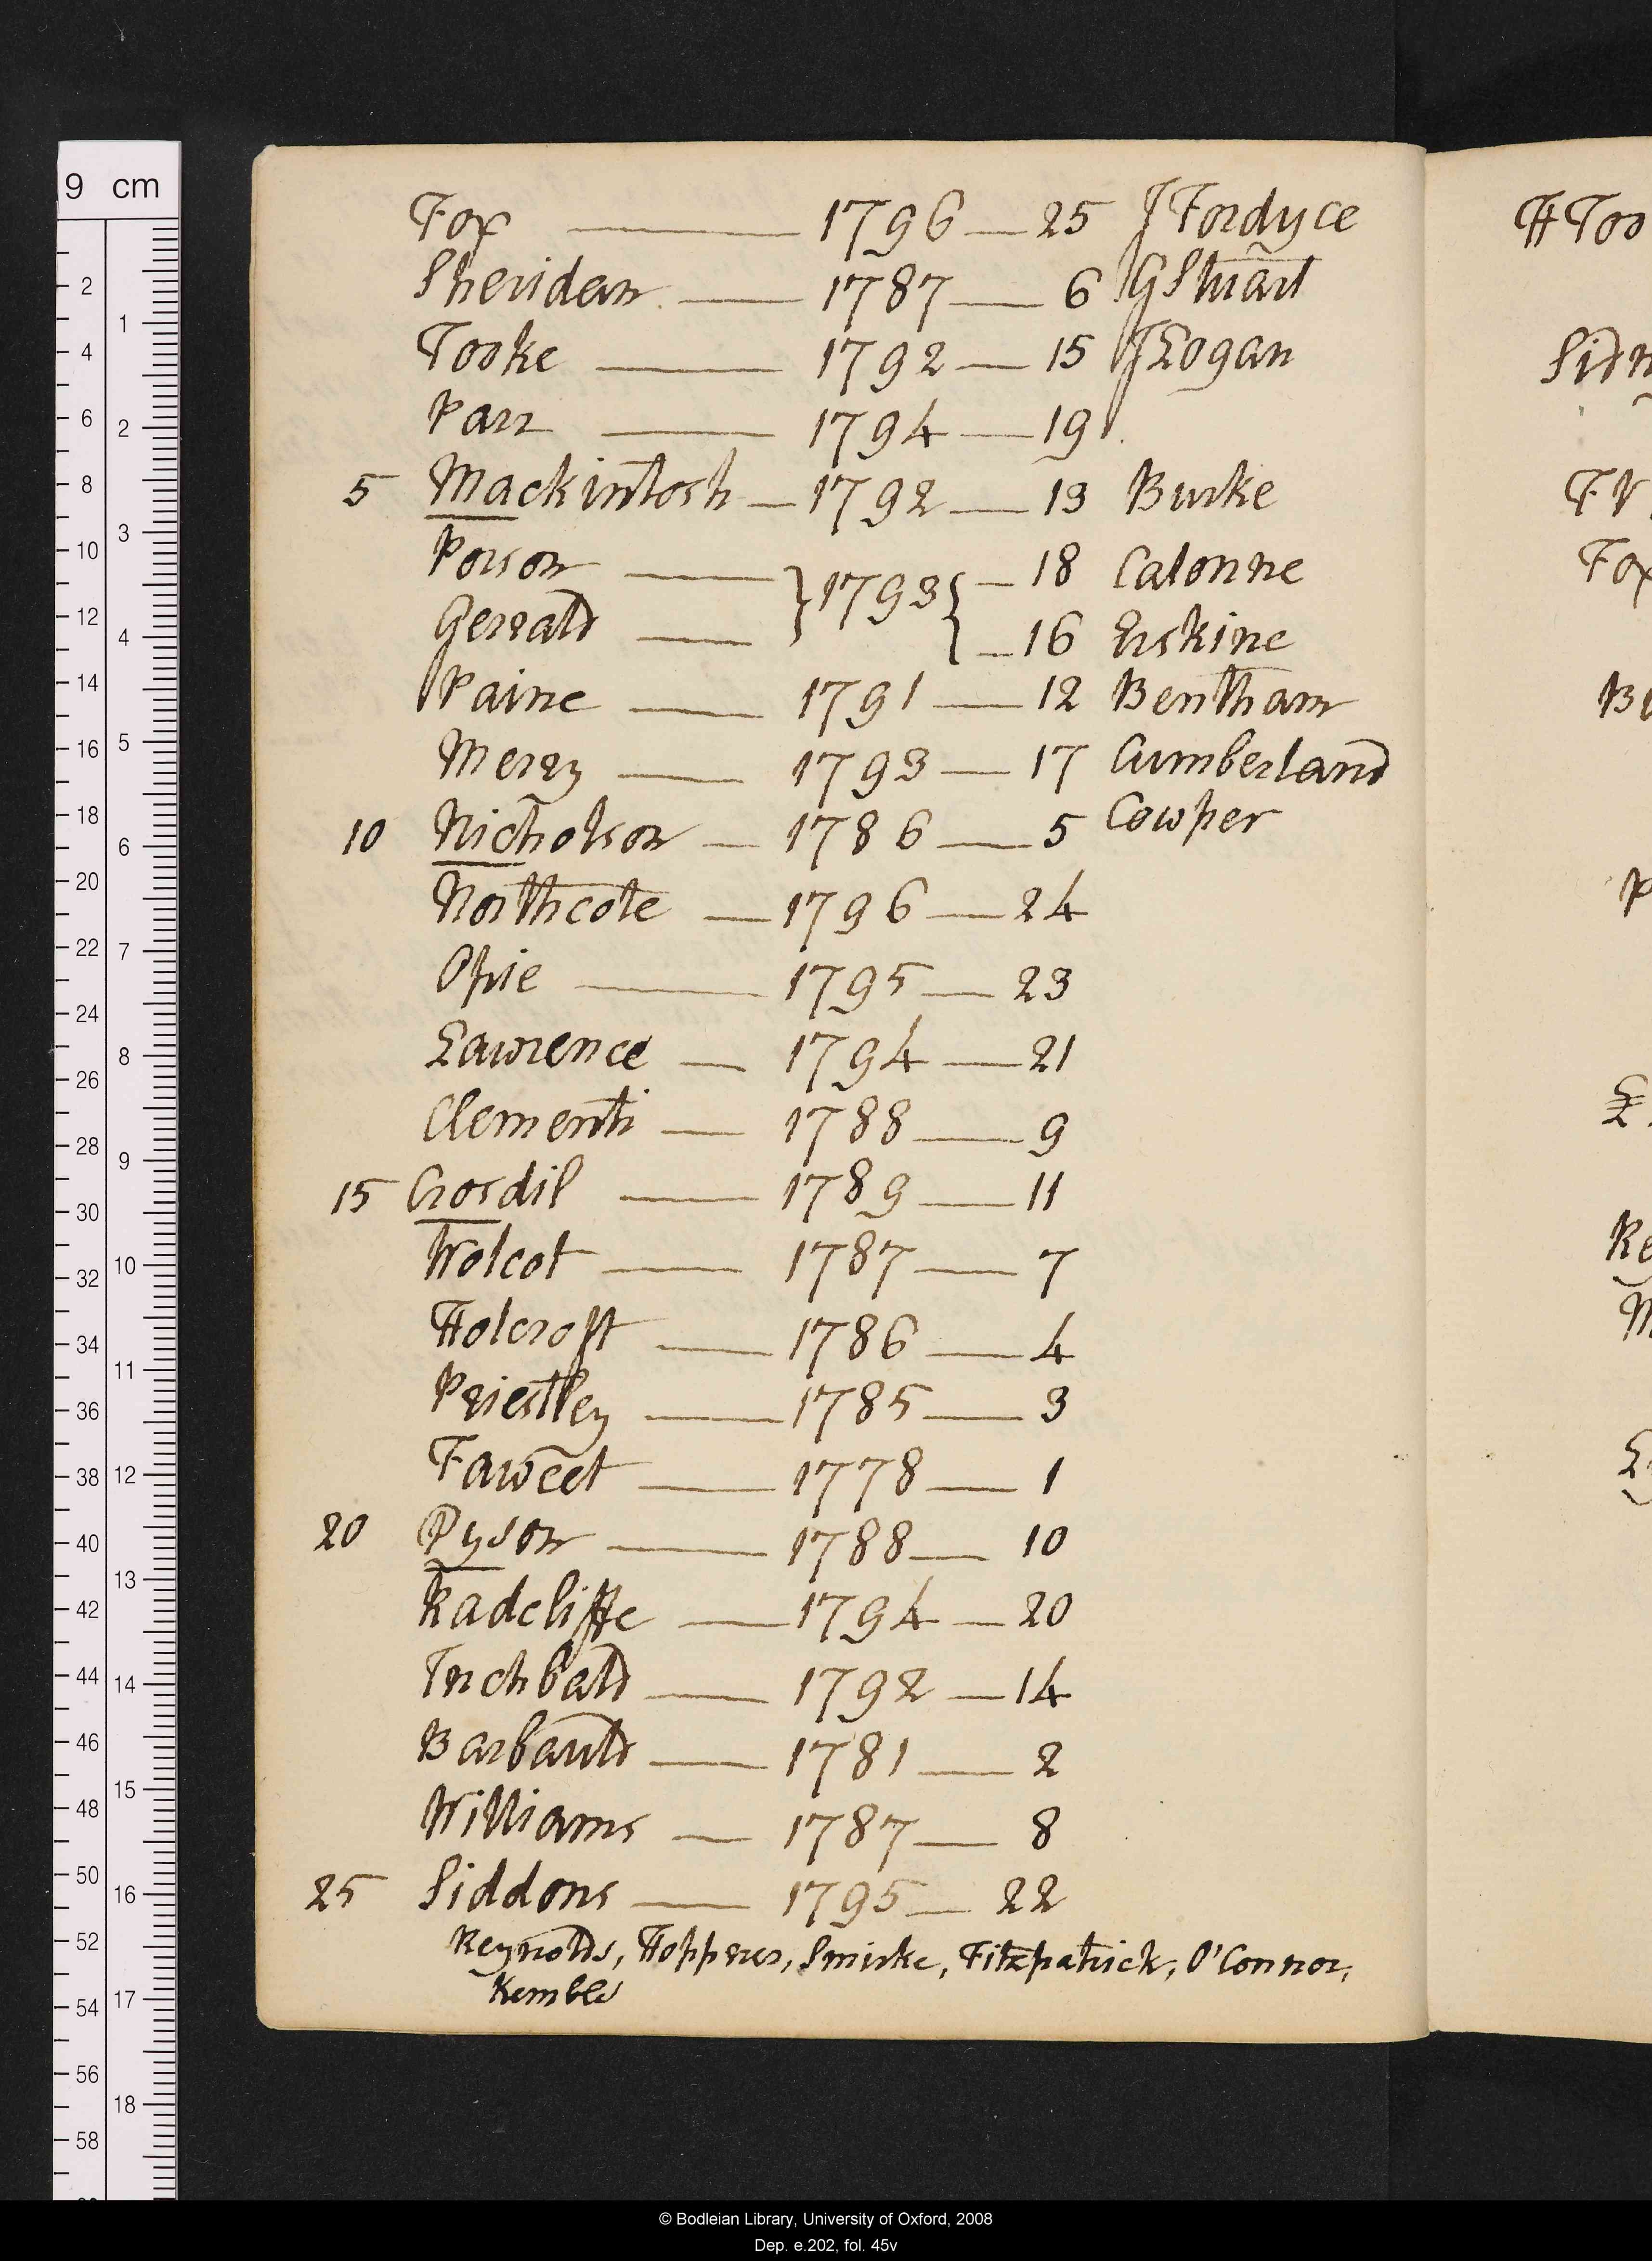 Fox 1796 — 25 J Fordyce
Sheridan 1787 — 6 G Stuart
Tooke 1792 — 15 J Logan
Parr 1794 — 19
5 Mackintosh — 1792 — 13 Burke
Porson } 1793 { — 18 Calonne
Gerrald — 16 Erskine
Paine — 1791 — 12 Bentham
Merry — 1793 — 17 Cumberland
10 Nicholson — 1786 — 5 Cowper
Northcote — 1796 — 24
Opie — 1795 — 23
Lawrence — 1794 — 21
Clementi — 1788 — 9
15 Crosdil — 1789 — 11
Wolcot — 1787 — 7
Holcroft — 1786 — 4
Priestley — 1785 — 3
Fawcet — 1778 — 1
20 Dyson — 1788 — 10
Radcliffe — 1794 — 20
Inchbald — 1792 — 14
Barbauld — 1781 — 2
Williams — 1787 — 8
25 Siddons — 1795 — 22
Reynolds, Hoppner, Smirke, Fitzpatrick, O'Connor,
Kemble
H Too
Sidn
Fox
© Bodleian Library, University of Oxford, 2008
Dep. e.202, fol. 45v